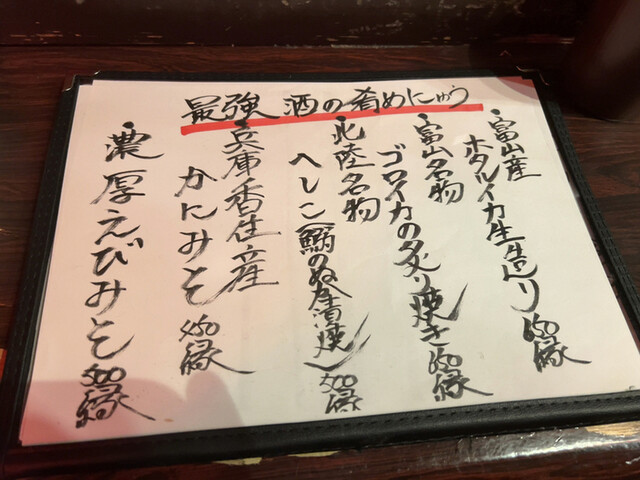 最強 酒の肴めにゅう
・富山産
ホタルイカ生造り 650縁
・富山名物
ゴロイカの炙り焼き 650縁
・北陸名物
へしこ(鰯のぬか漬焼) 500縁
・兵庫香住産
かにみそ 450縁
・濃厚えびみそ 500縁